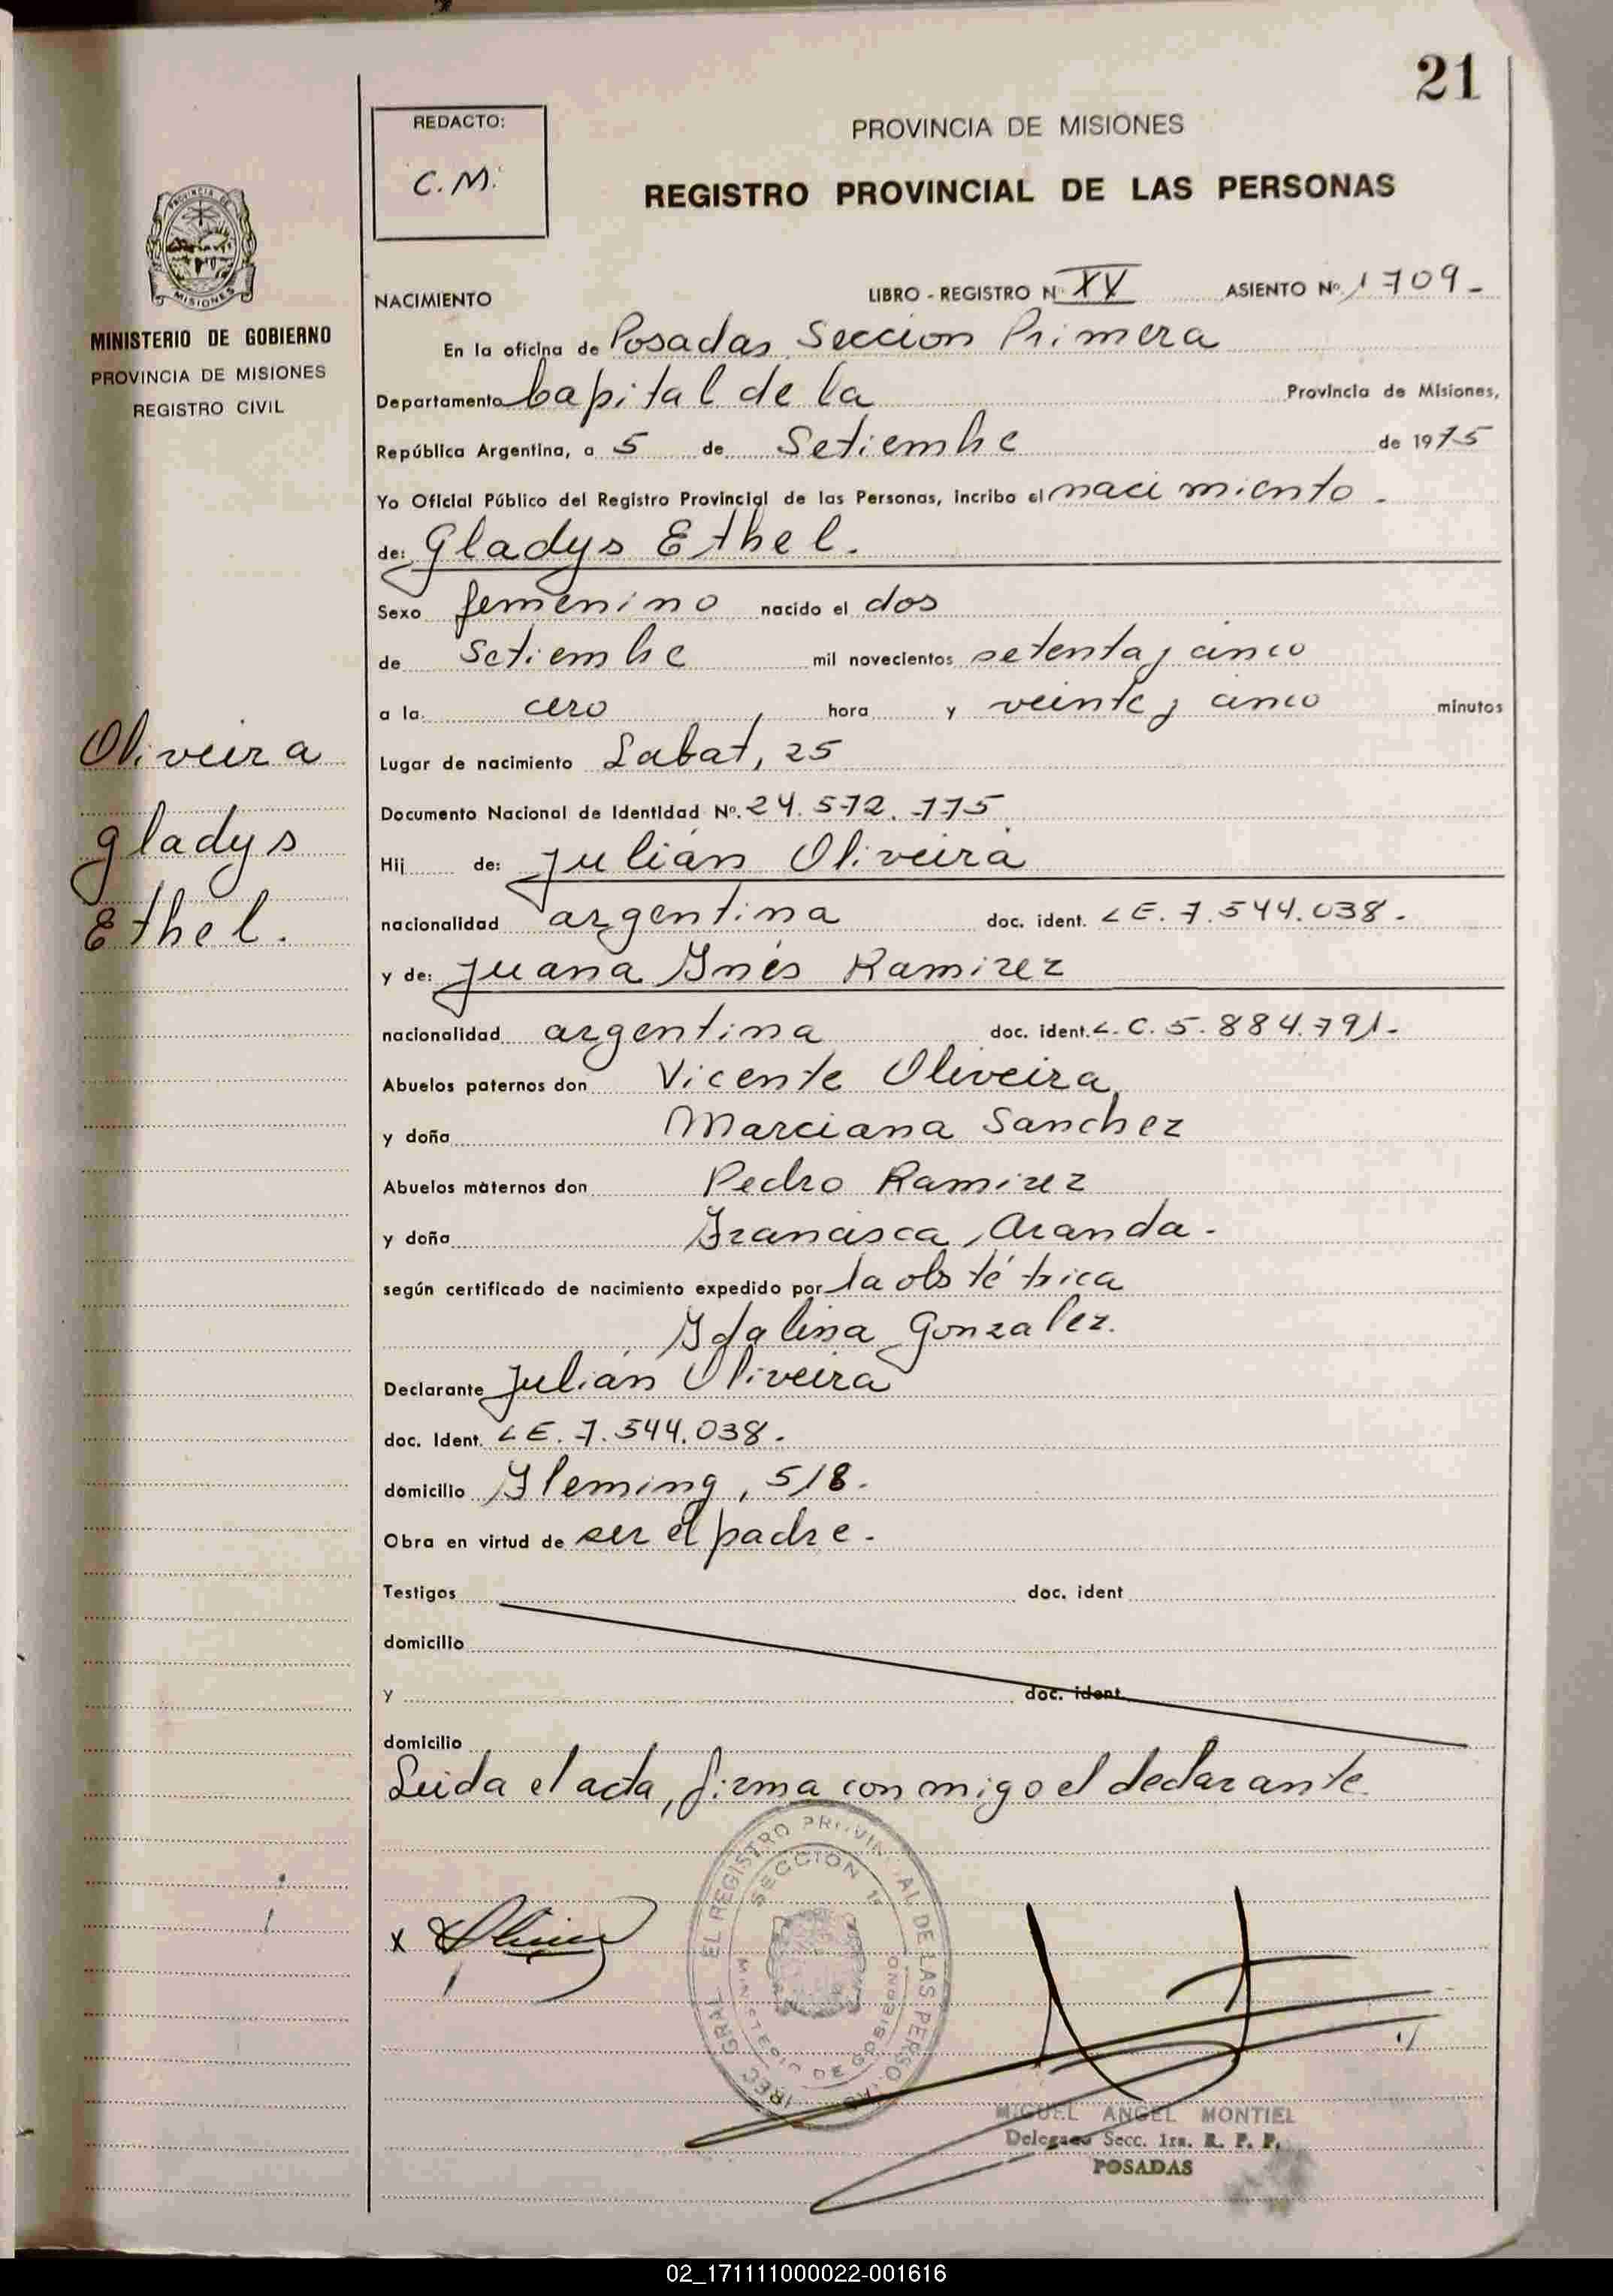 21
REDACTO:
C.M.
PROVINCIA DE MISIONES
REGISTRO PROVINCIAL DE LAS PERSONAS
MISIONES
MINISTERIO DE GOBIERNO
PROVINCIA DE MISIONES
REGISTRO CIVIL
NACIMIENTO LIBRO - REGISTRO Nº XV ASIENTO Nº 1709-
En la oficina de Posadas Seccion Primera
Departamento Capital de la Provincia de Misiones,
República Argentina, a 5 de Setiembre de 1975
Yo Oficial Público del Registro Provincial de las Personas, incribo el nacimiento.
de: Gladys Ethel.
Sexo femenino nacido el dos
de Setiembre mil novecientos setenta y cinco
a la cero hora y veinte y cinco minutos
Oliveira
Gladys
Ethel.
Lugar de nacimiento Labat, 25
Documento Nacional de Identidad Nº. 24.572.775
Hij de: Julián Oliveira
nacionalidad argentina doc. ident. LE. 7.544.038.
y de: Juana Inés Ramirez
nacionalidad argentina doc. ident. L.C. 5.884.791.
Abuelos paternos don Vicente Oliveira
y doña Marciana Sanchez
Abuelos maternos don Pedro Ramirez
y doña Francisca Aranda.
según certificado de nacimiento expedido por la obstétrica
Idalina Gonzalez.
Declarante Julián Oliveira
doc. Ident. LE. 7.544.038.
domicilio Fleming, 518.
Obra en virtud de ser el padre.
Testigos doc. ident
domicilio
y doc. ident.
domicilio
Leida el acta, firma conmigo el declarante
x
GRAL EL REGISTRO PROVINCIAL DE LAS PERSONAS
SECCION 1ª
MINISTERIO DE GOBIERNO
MIGUEL ANGEL MONTIEL
Delegado Secc. 1ra. R. P. P.
POSADAS
02_171111000022-001616